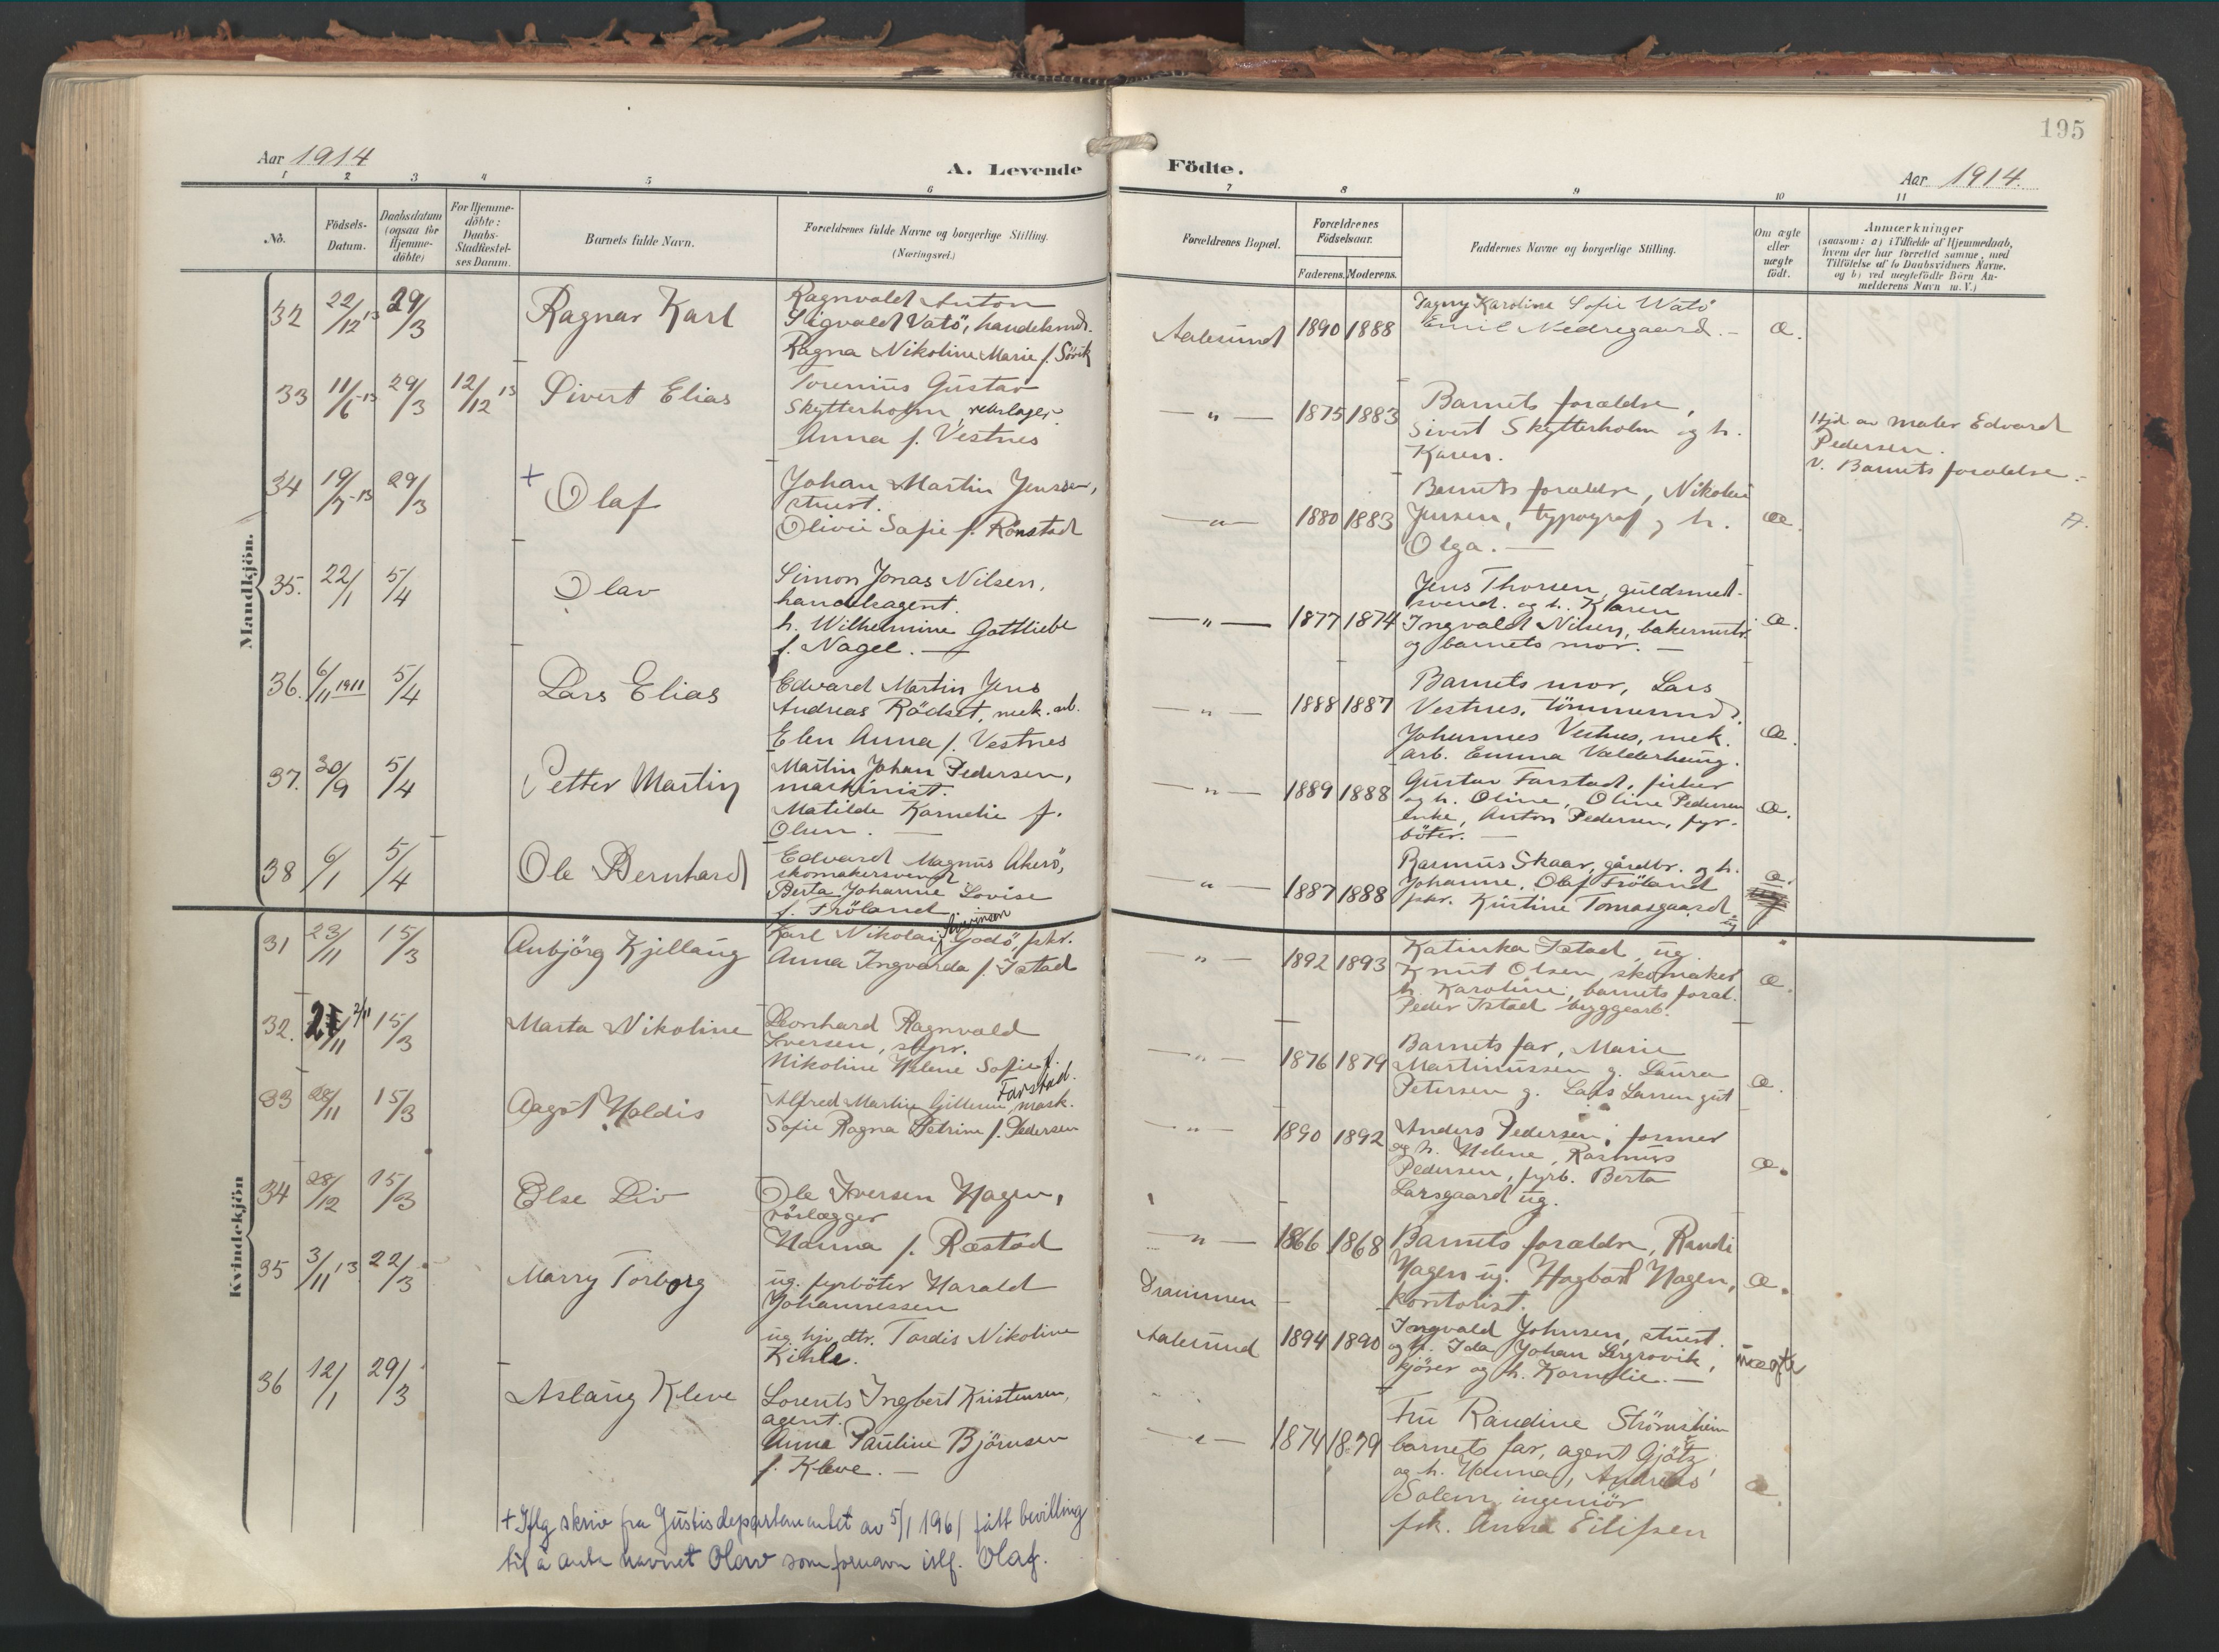 195
Aar 1914
A. Levende Födte.
Aar 1914.
1 2 3 4 5 6 7 8 9 10 11
No.
Födsels-
Datum.
Daabsdatum
(ogsaa for
Hjemme-
döbte)
For Hjemme-
döbte:
Daabs-
Stadfæstel-
ses Datum.
Barnets fulde Navn.
Forældrenes fulde Navne og borgerlige Stilling.
(Næringsvei.)
Forældrenes Bopæl.
Forældrenes
Födselsaar.
Faderens. Moderens.
Faddernes Navne og borgerlige Stilling.
Om ægte
eller
uægte
födt.
Anmærkninger
(saasom: a) i Tilfælde af Hjemmedaab,
hvem der har forrettet samme, med
Tilföielse af to Daabsvidners Navne.
og b) ved uægtefödte Börn An-
melderens Navn m. V.)
Mandkjön.
32 22/12 13 29/3 Ragnar Karl
Ragnvald Anton
Sigvald Vatö, handelsmd.
Ragna Nikoline Marie f. Sövik
Aalesund 1890 1888
Dagny Karoline Sofie Watö
Emil Nedregaard. —
æ.
33 11/6-13 29/3 12/12 13 Sivert Elias
Torenius Gustav
Skytterholm,
Anna f. Vestnes
— " — 1875 1883
Barnets forældre,
Sivert Skytterholm og h.
Karen.
Hjd. av maler Edvard
Pedersen.
v. Barnets forældre. —
34 19/7-13 29/3 + Olaf
Johan Martin Jenssen,
stuert.
Olivie Sofie f. Rönstad
— " — 1880 1883
Barnets forældre, Nikolai
Jensen, typograf og h.
Olga. —
æ.
35. 22/1 5/4 Olav
Simon Jonas Nilsen,
handelsagent.
h. Wilhelmine Gottliebe
f. Nagel. —
— " — 1877 1874
Jens Thorsen, guldsmed-
svend. og h. Karen
Ingvald Nilsen, bakermstr.
og barnets mor. —
æ.
36. 6/11 1911 5/4 Lars Elias
Edvard Martin Jens
Andreas Rödset, mek. arb.
Elen Anna f. Vestnes
— " — 1888 1887
Barnets mor, Lars
Vestnes, tömmermd.
Johannes Vestnes, mek.
arb. Emma Valderhaug.
æ.
37. 30/9 5/4 Petter Martin
Martin Johan Pedersen,
maskinist.
Matilde Kornelie f.
Olsen. —
— " — 1889 1888
Gustav Farstad, fisker
og h. Oline, Oline Pedersen
enke, Anton Pedersen, fyr-
böter. —
æ.
38 6/1 5/4 Ole Bernhard
Edvard Magnus Akerö,
skomakersvend
Berta Johanne Lovise
f. Fröland.
— " — 1887 1888
Rasmus Skaar, gårdbr. og h.
Johanne, Olaf Fröland
fskr. Kristine Tomasgaard
æ.
Kvindekjön
31 23/11 15/3 Anbjörg Kjellaug
Karl Nikolai Severinsen Godö, fskr.
Anna Ingvarda f. Istad
— " — 1892 1893
Katinka Istad, ug.
Knut Olsen, skomaker
h. Karoline, barnets foræl.
Peder Istad byggearb.
æ.
32. 15/3 Marta Nikoline
Leonhard Ragnvald
Iversen,
Nikoline Helene Sofie f.
Farstad.
— " — 1876 1879
Barnets far, Marie
Martinussen g. Laura
Petersen g. Lars Larsen gut
æ.
33 28/11 15/3 Aagot Haldis
Alfred Martin Gillesen, mask.
Sofie Ragna Petrine f. Pedersen
— " — 1890 1892
Anders Pedersen, former
og h. Helene, Rasmus
Pedersen, fyrb. Berta
Larsgaard ug.
æ.
34 28/12 15/3 Else Liv
Ole Iversen Hagen,
rörlægger
Hanna f. Ræstad
— " — 1866 1868
Barnets forældre, Randi
Hagen ug. Hagbart Hagen,
kontorist.
æ.
35 3/11 13 22/3 Marry Torborg
ug. fyrböter Harald
Johannessen
ug. hjv. dtr. Tordis Nikoline
Kihle.
Drammen —
Aalesund 1894 1890
Ingvald Johnsen, stuert.
og h. Ida, Johan Lergrovik,
kjörer og h. Kornelie. —
uægte
36 12/1 29/3 Aslaug Kleve
Lorents Ingbert Kristensen,
agent.
Anna Pauline Björnsen
f. Kleve. —
— " — 1874 1879
Fru Randine Strömsheim
barnets far, agent Gjötz
og h. Hanna, Andreas
Salem, ingeniör
frk. Anna Eilifsen
æ.
+ Iflg skriv fra Justisdepartementet av 5/1 1961 fått bevilling
til å anta navnet Olav som fornavn istf. Olaf.